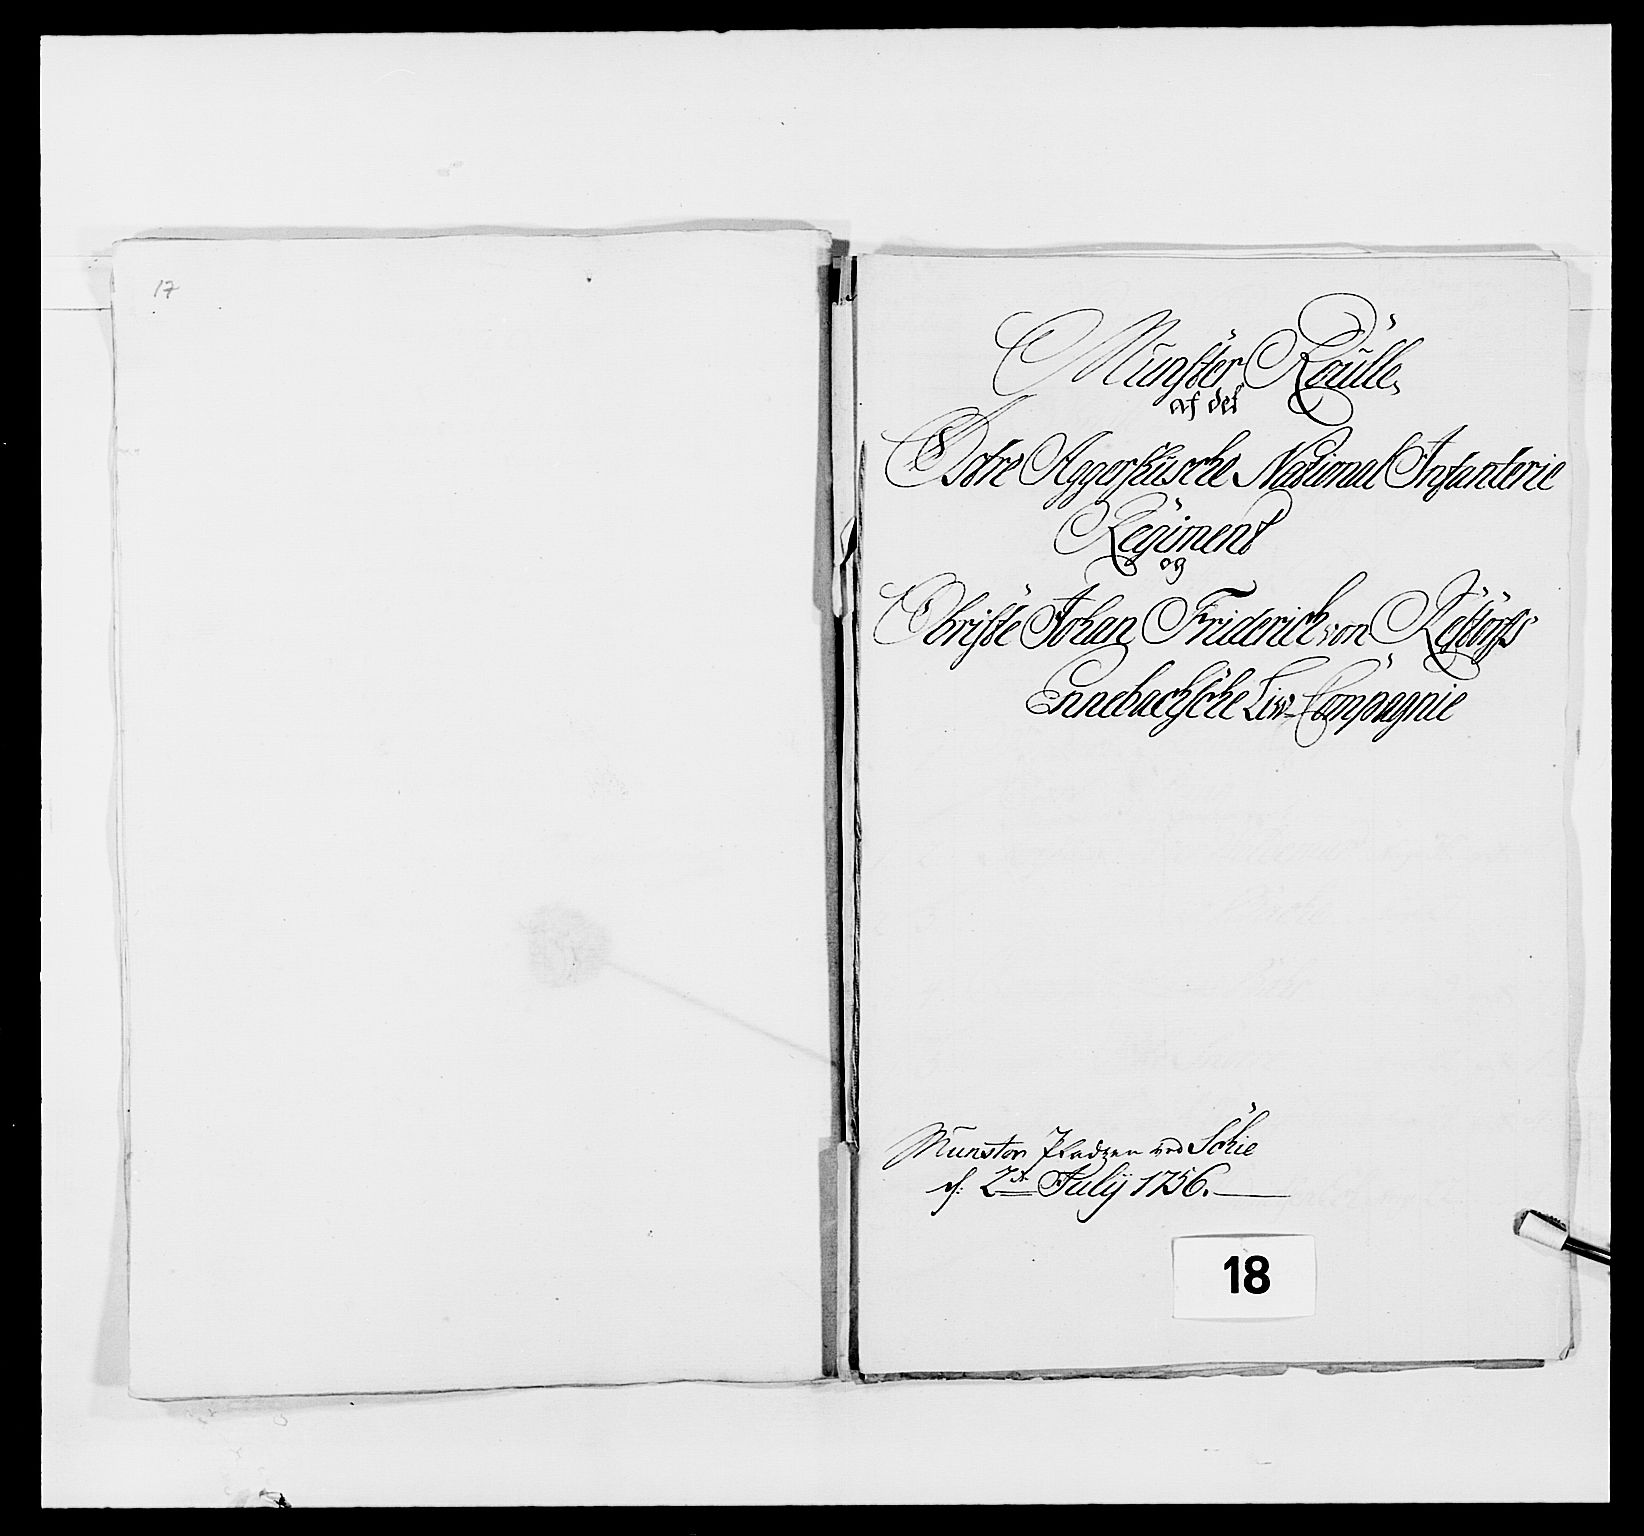 17
Munster Roulle,
af det
2dre Aggerhusche National Infanterie
Regiment
og
Obriste Johan Friderich von Restorffs
Ennebachsche Liv-Compagnie
Munster Pladzen ved Schie
d: 2de Julÿ 1756.
18